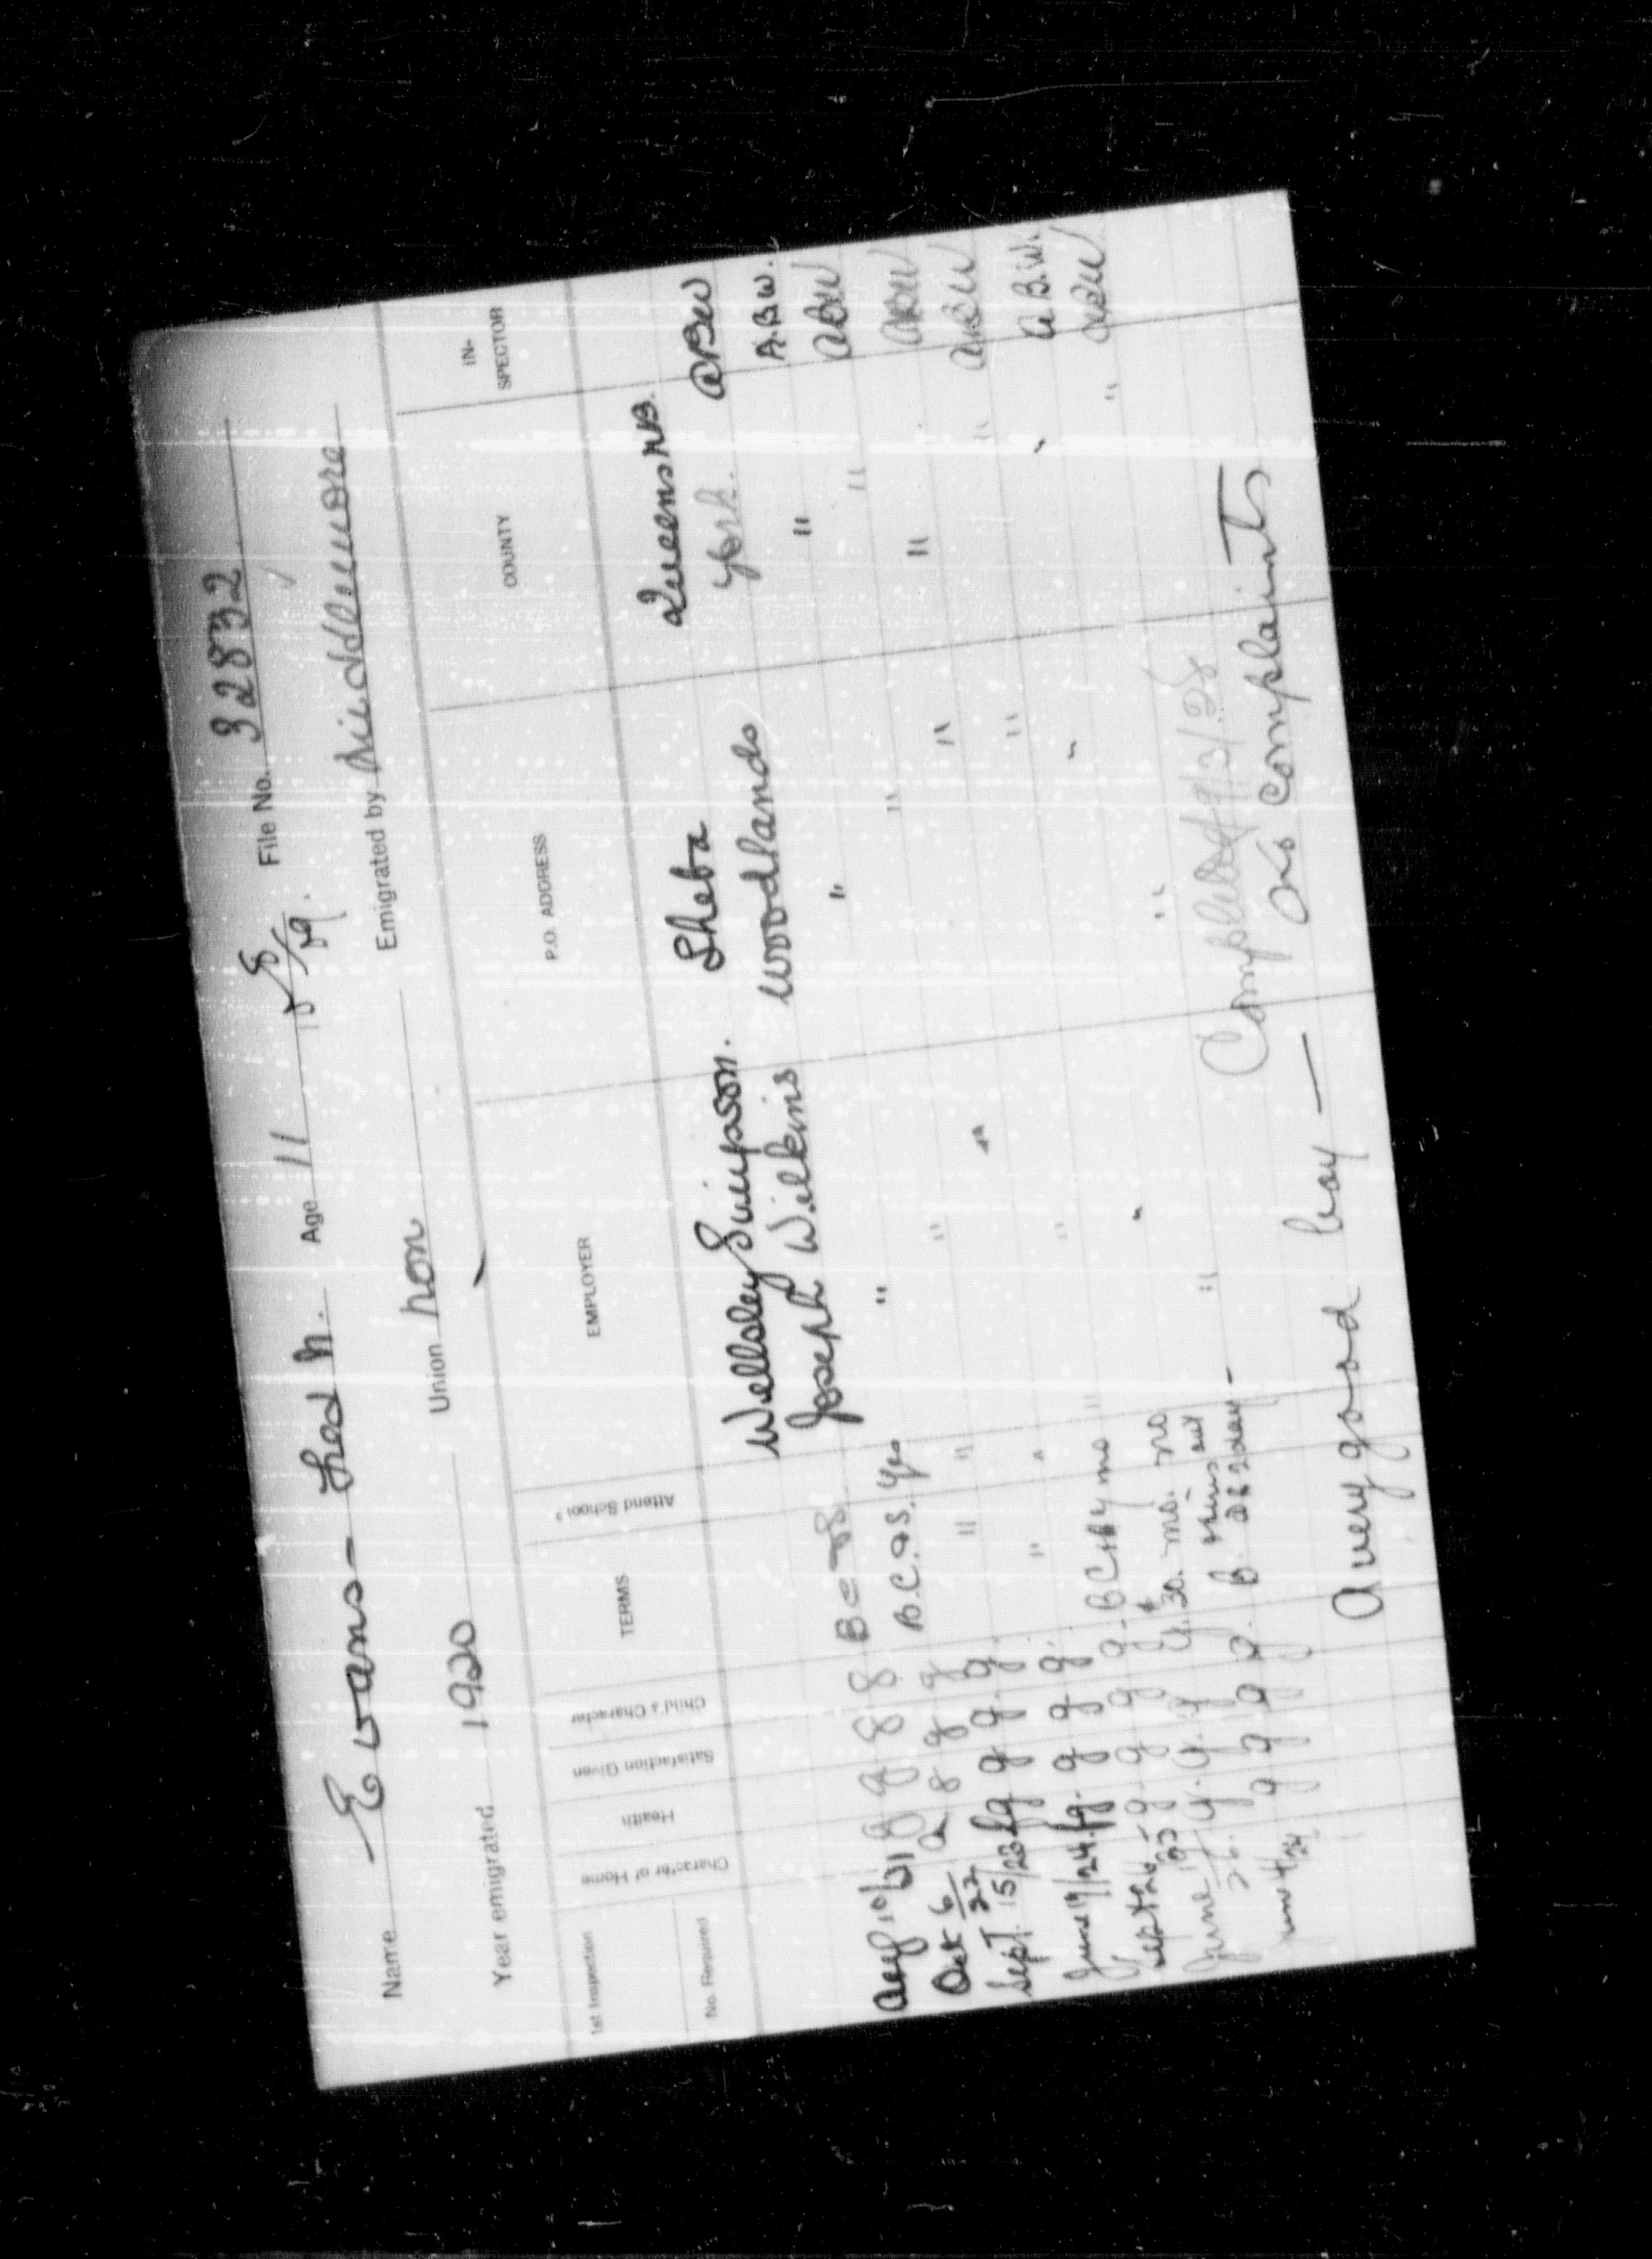 Name Evans - Fred h. Age 11 8/5/09. File No. 32832
Year emigrated 1920 Union non Emigrated by Middlemore
1st Inspection
No. Required
Character of Home
Health
Satisfaction Given
Child's Character
TERMS
Attend School?
EMPLOYER
P.O. ADDRESS
COUNTY
IN-SPECTOR
Aug 10/21 g g g g B C & S. Wellsley Simpson. Sheba Queens N.B. ABW
Oct 6/22 g g g B.C. & S. Yes Joseph Wilkins Woodlands York. A.B.W.
Sept. 15/23 fg g g g " " " " " ABW
June 19/24 fg. g g g. " " " " " ABW
Sept 26/25 g g g g. BC no " " " ABW
June 19/26. g. g. g g. $30. no. no " " " A.B.W.
g g g g. B. " " " ABW
Completed /3/28
A very good boy — no complaints